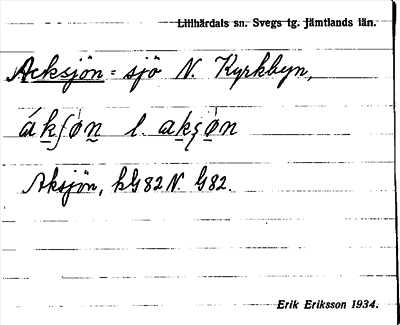 Lillhärdals sn. Svegs tg. Jämtlands län.
Acksjön = sjö N. Kyrkbyn,
l.
Aksjön, kG82N. G82.
Erik Eriksson 1934.